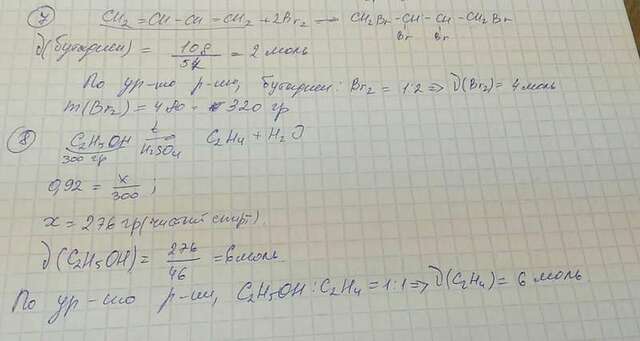 7) CH2 = CH - CH - CH2 + 2Br2 — CH2Br - CH - CH - CH2Br
Br Br
ν(бутадиен) = 108/54 = 2 моль
По ур-ию р-ии, бутадиен : Br2 = 1:2 => ν(Br2) = 4 моль
m(Br2) = 4·80 = 320 гр
8) C2H5OH t/H2SO4 C2H4 + H2O
300 гр
0,92 = x/300 ;
x = 276 гр (чистый спирт).
ν(C2H5OH) = 276/46 = 6 моль
По ур-ию р-ии, C2H5OH : C2H4 = 1:1 => ν(C2H4) = 6 моль.